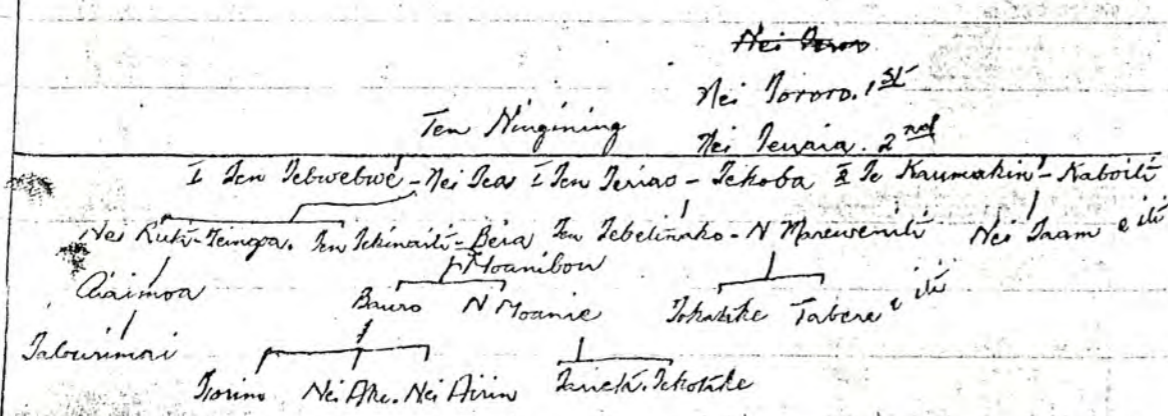 Nei Toror
Nei Tororo. 1st
Ten Ningining
Nei Tenaia. 2nd
I Ten Tebwebwe - Nei Teas I Ten Teriao - Tekoba II Te Kaumakin - Kaboiti
Nei Ruti - Teingoa. Ten Tekinaiti - Beia Ten Tebetinako - N Mareweniti Nei Taam e iti
Moanibou
Airimoa Bauro N Moanie Tokatake Tabere e iti
Taburimai
Tiorino Nei Ake. Nei Airin Tekotake